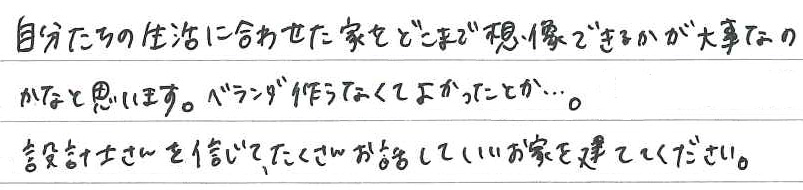 自分たちの生活に合わせた家をどこまで想像できるかが大事なの
かなと思います。ベランダ作らなくてよかったことか…。
設計士さんを信じて、たくさんお話していいお家を建ててください。